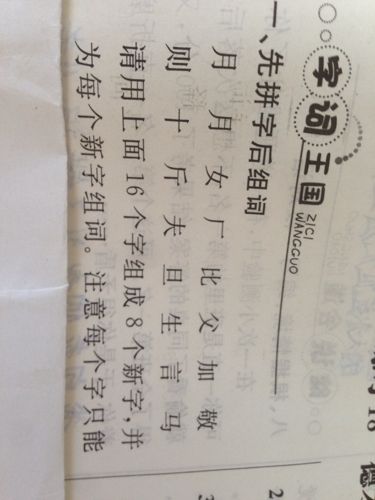 字词王国
ZICI
WANGGUO
一、先拼字后组词
月 月 女 厂 比 父 加 敬
则 十 斤 夫 旦 生 言 马
请用上面16个字组成8个新字,并
为每个新字组词。注意每个字只能
18 德
2